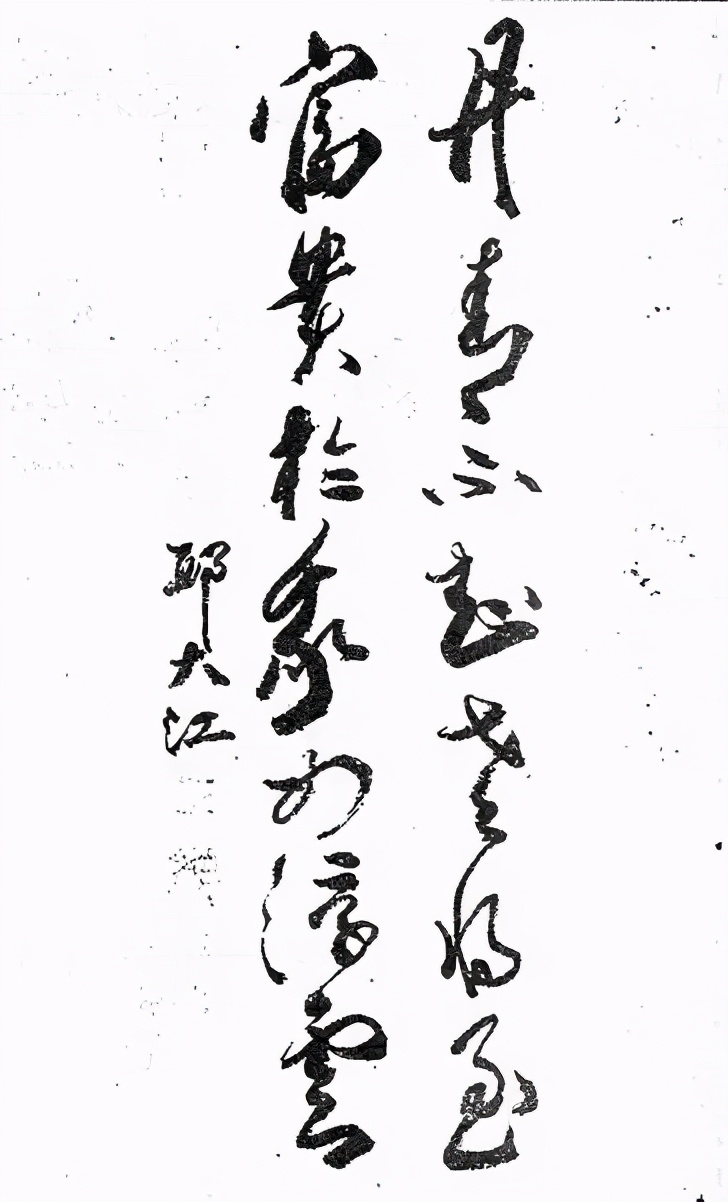 丹青不知老將至
富貴於我如浮雲
邱大江